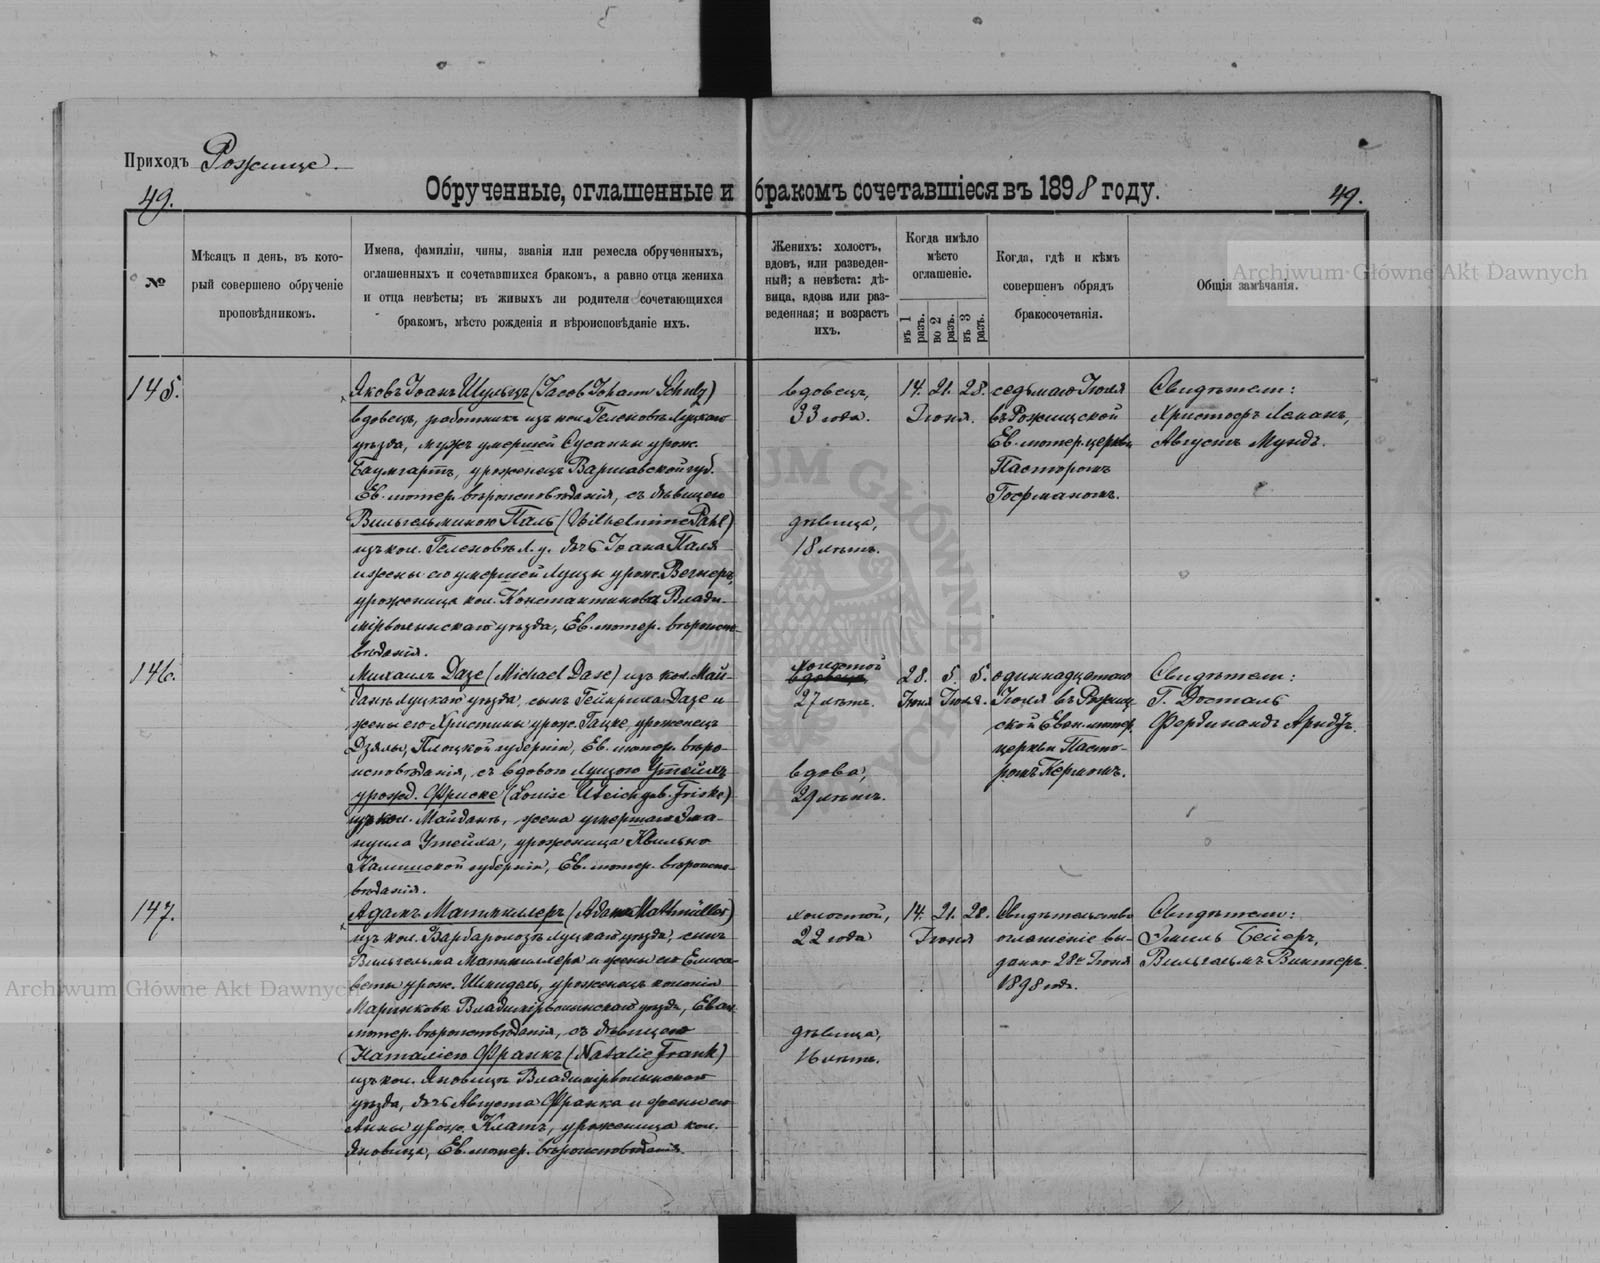 Приходъ Рожище.
49.
Обрученные, оглашенные и бракомъ сочетавшіеся въ 1898 году.
49.
№
Мѣсяцъ и день, въ кото-
рый совершено обрученіе
проповѣдникомъ.
Имена, фамиліи, чины, званія или ремесла обрученныхъ,
оглашенныхъ и сочетавшихся бракомъ, а равно отца жениха
и отца невѣсты; въ живыхъ ли родители сочетающихся
бракомъ, мѣсто рожденія и вѣроисповѣданіе ихъ.
Женихъ: холостъ,
вдовъ, или разведен-
ный; а невѣста: дѣ-
вица, вдова или раз-
веденная; и возрастъ
ихъ.
Когда имѣло
мѣсто
оглашеніе.
въ 1 разъ.
во 2 разъ.
въ 3 разъ.
Когда, гдѣ и кѣмъ
совершенъ обрядъ
бракосочетанія.
Общія замѣчанія.
145.
Яковъ Іоанъ Шульцъ (Jacob Johann Schulz)
вдовецъ, работникъ изъ кол. Геленовъ Луцкаго
уѣзда, мужъ умершей Сусанны урож.
Баумгартъ, уроженецъ Варшавской губ.
Ев. лютер. вѣроисповѣданія, съ дѣвицею
Вильгельминою Паль (Wilhelmine Pahl)
изъ кол. Геленовъ Л. у. дочь Іоана Паля
и жены его умершей Луизы урож. Вегнеръ,
уроженица кол. Константиновъ Влади-
мірволынскаго уѣзда, Ев. лютер. вѣроиспо-
вѣданія.
вдовецъ,
33 года.
дѣвица,
18 лѣтъ.
14. 21. 28.
Іюня.
седьмаго Іюля
въ Рожищской
Ев. лютер. церкви
Пасторомъ
Гофманомъ.
Свидѣтели:
Христофъ Леманъ,
Августъ Мундъ.
146.
Михаилъ Дазе (Michael Dase) изъ кол. Май-
данъ Луцкаго уѣзда, сынъ Гейнриха Дазе и
жены его Христины урож. Гацке, уроженецъ
Дзялы, Плоцкой губерніи, Ев. лютер. вѣро-
исповѣданія, съ вдовою Луизою Утейхъ
урожд. Фриске (Louise Uteich geb. Friske)
изъ кол. Майданъ, жена умершаго Эма-
нуила Утейха, уроженица Квильно
Калишской губерніи, Ев. лютер. вѣроиспо-
вѣданія.
холостой
вдовецъ
27 лѣтъ.
вдова,
29 лѣтъ.
28. 5. 5.
Іюня Іюля.
одиннадцатаго
Іюля въ Рожищ-
ской Еван. лютер.
церкви Пасто-
ромъ Кермомъ.
Свидѣтели:
Г. Досталь
Фердинандъ Арндтъ.
147.
Адамъ Матмиллеръ (Adam Mathmüller)
изъ кол. Барбаровъ Луцкаго уѣзда, сынъ
Вильгельма Матмиллера и жены его Елиса-
веты урож. Шмидель, уроженецъ колоніи
Марьяновка Владимірволынскаго уѣзда, Еван.
лютер. вѣроисповѣданія, съ дѣвицею
Наталіею Франкъ (Natalie Frank)
изъ кол. Яновицъ Владимірволынскаго
уѣзда, дочь Августа Франка и жены его
Анны урож. Клатъ, уроженица кол.
Яновица, Ев. лютер. вѣроисповѣданія.
холостой,
22 года
дѣвица,
16 лѣтъ.
14. 21. 28.
Іюня
Свидѣтельство
оглашеніе вы-
дано 28е Іюня
1898 года.
Свидѣтели:
Эмиль Бейеръ,
Вильгельмъ Винтеръ.
Archiwum Główne Akt Dawnych
Archiwum Główne Akt Dawnych